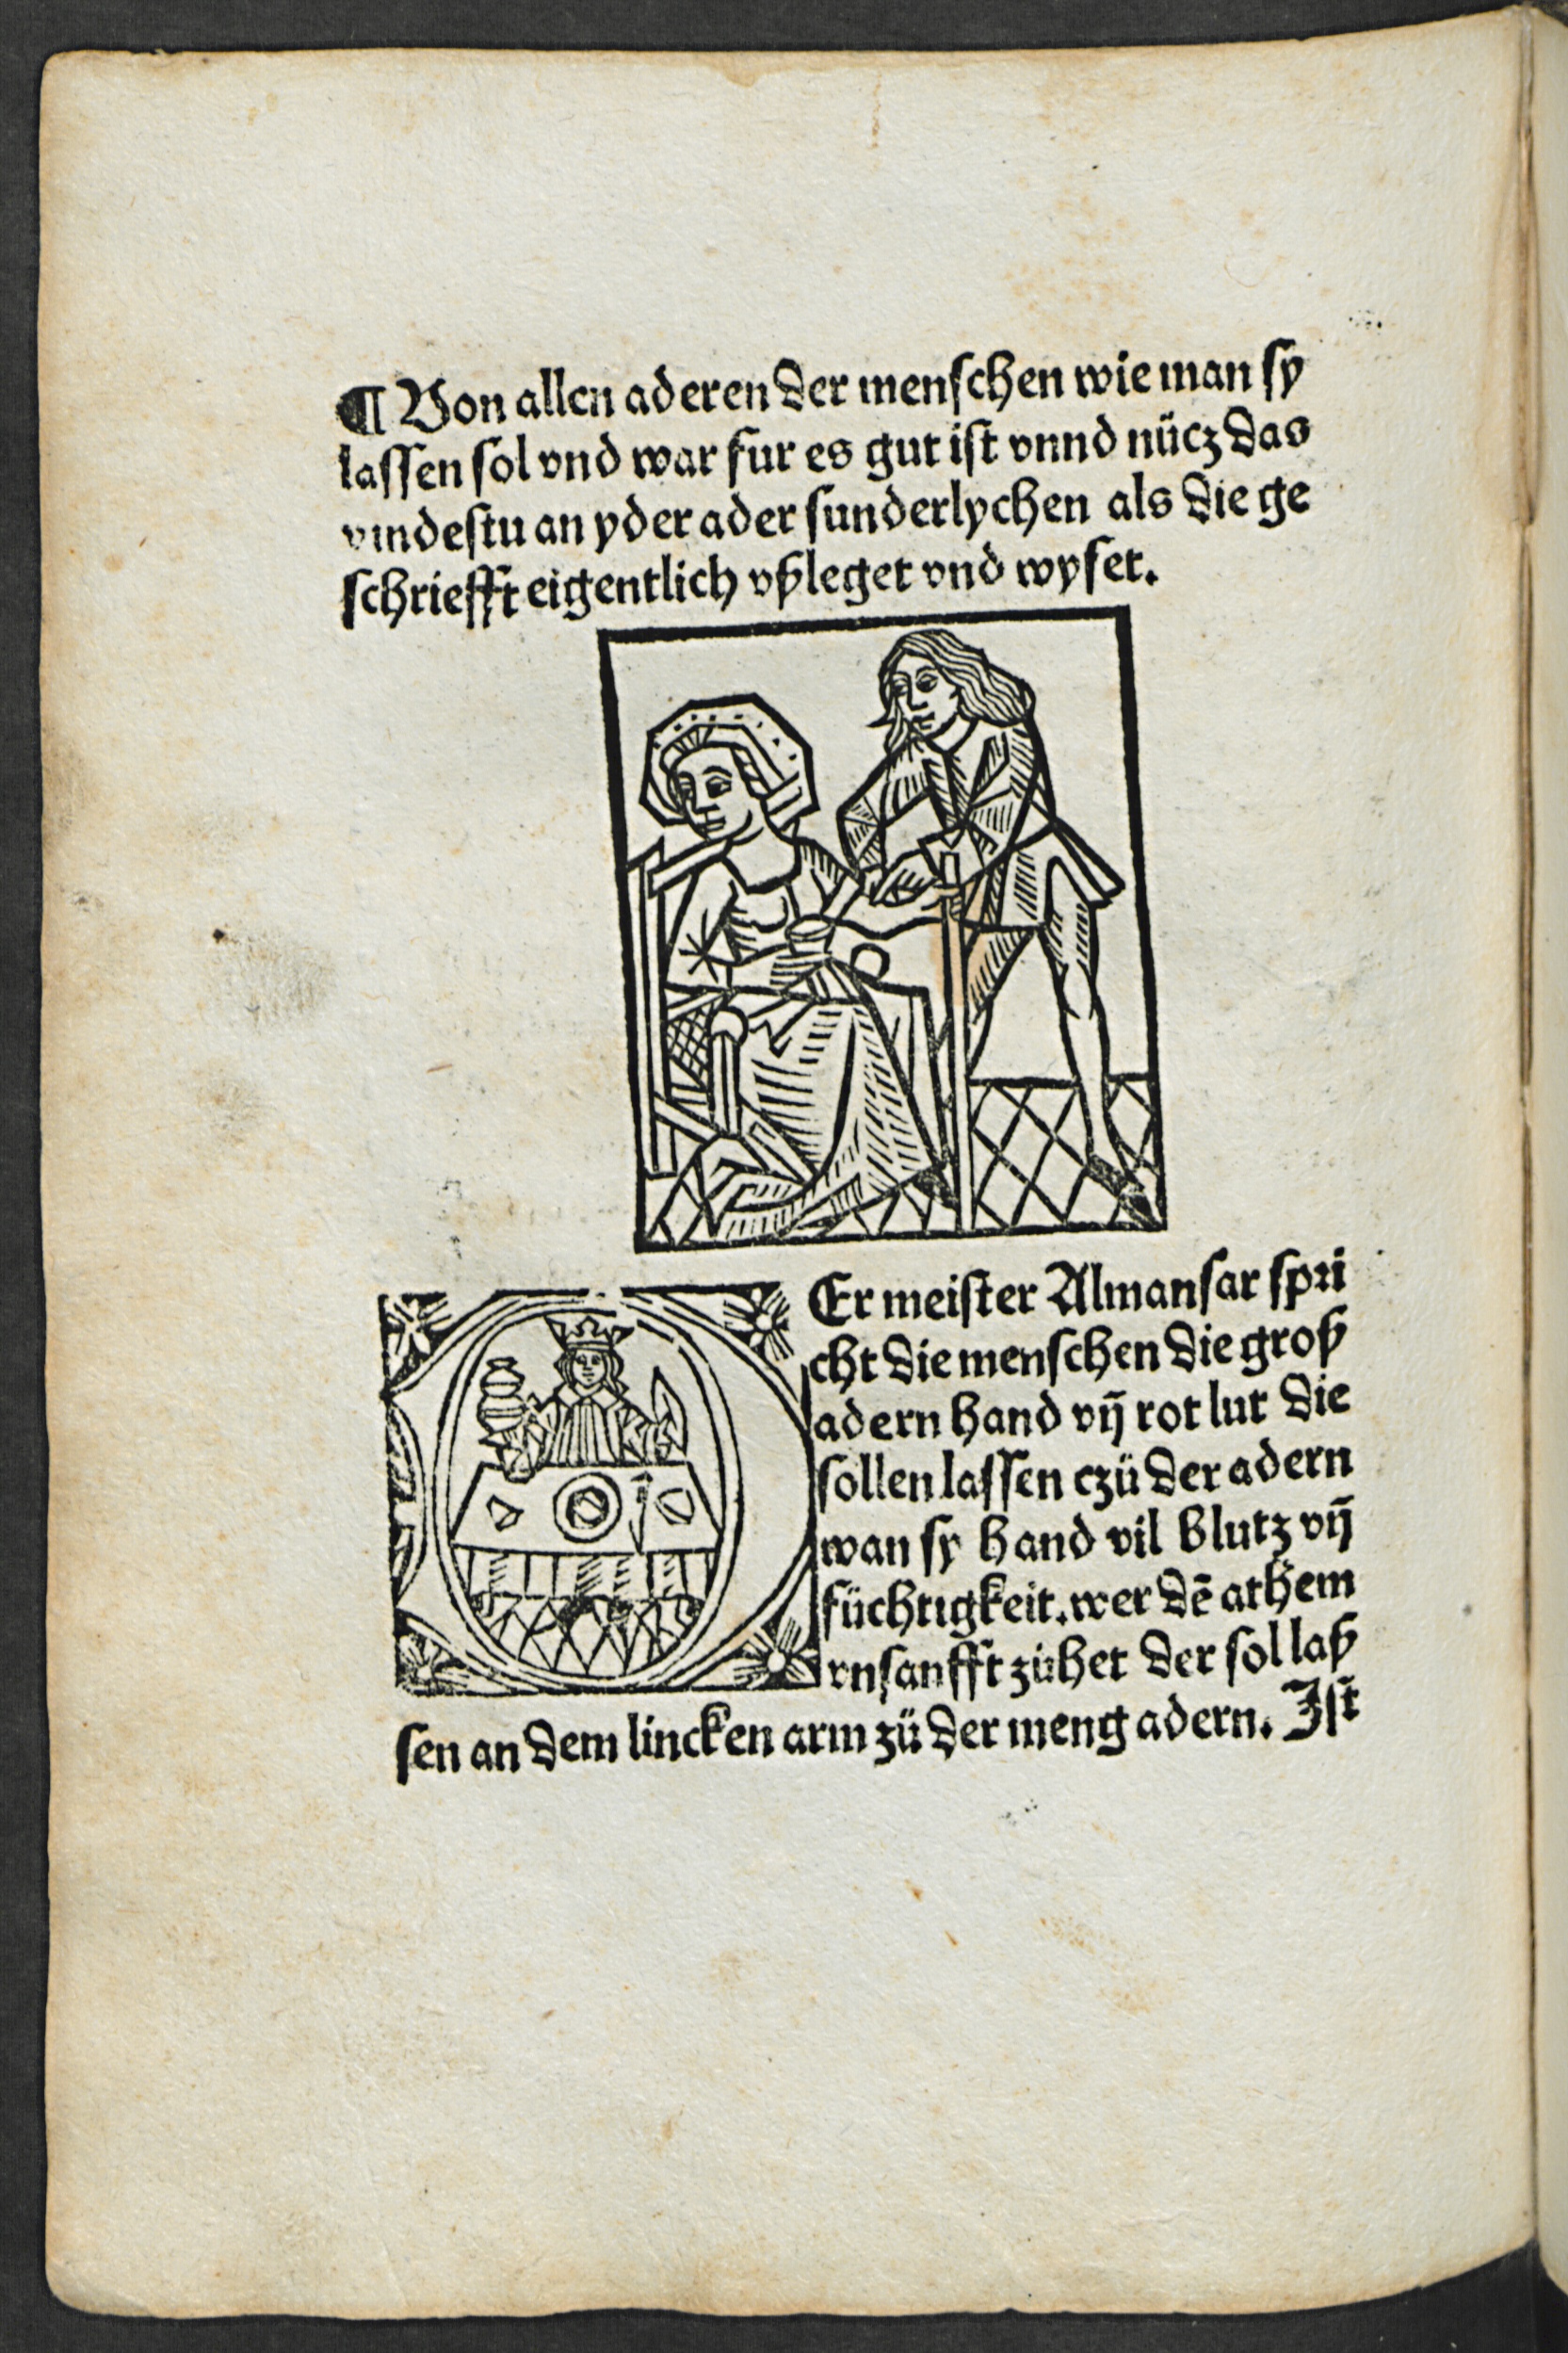 ¶ Von allen aderen der menschen wie man sy
lassen sol vnd war fur es gut ist vnnd nücz das
vindestu an yder ader sunderlychen als die ge
schriefft eigentlich vßleget vnd wyset.
DEr meister Almansar spri
cht die menschen die groß
adern hand vn̄ rot lut die
sollen lassen czü der adern
wan sy hand vil blutz vn̄
füchtigkeit. wer dē athem
vnsanfft zühet der sol laß
sen an dem lincken arm zü der meng adern. Ist